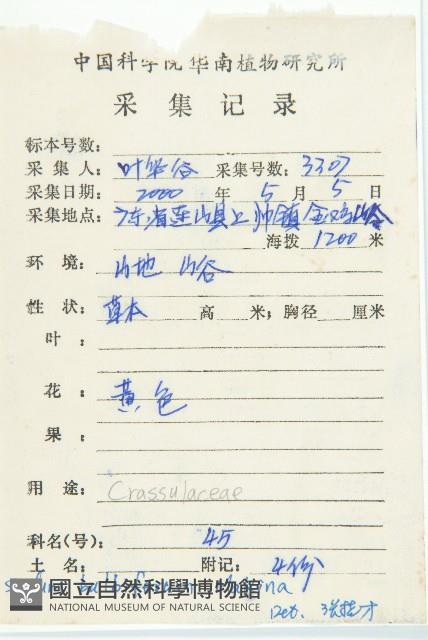 中国科学院华南植物研究所
采集记录
标本号数：
采集人：叶华谷 采集号数：3307
采集日期：2000 年 5 月 5 日
采集地点：广东省连山县上帅镇金鸡山谷
海拨 1200 米
环境：山地 山谷
性状：草本 高 米；胸径 厘米
叶：
花：黄色
果：
用途：Crassulaceae
科名(号)：45
土名： 附记：4份
國立自然科學博物館
NATIONAL MUSEUM OF NATURAL SCIENCE
Det.